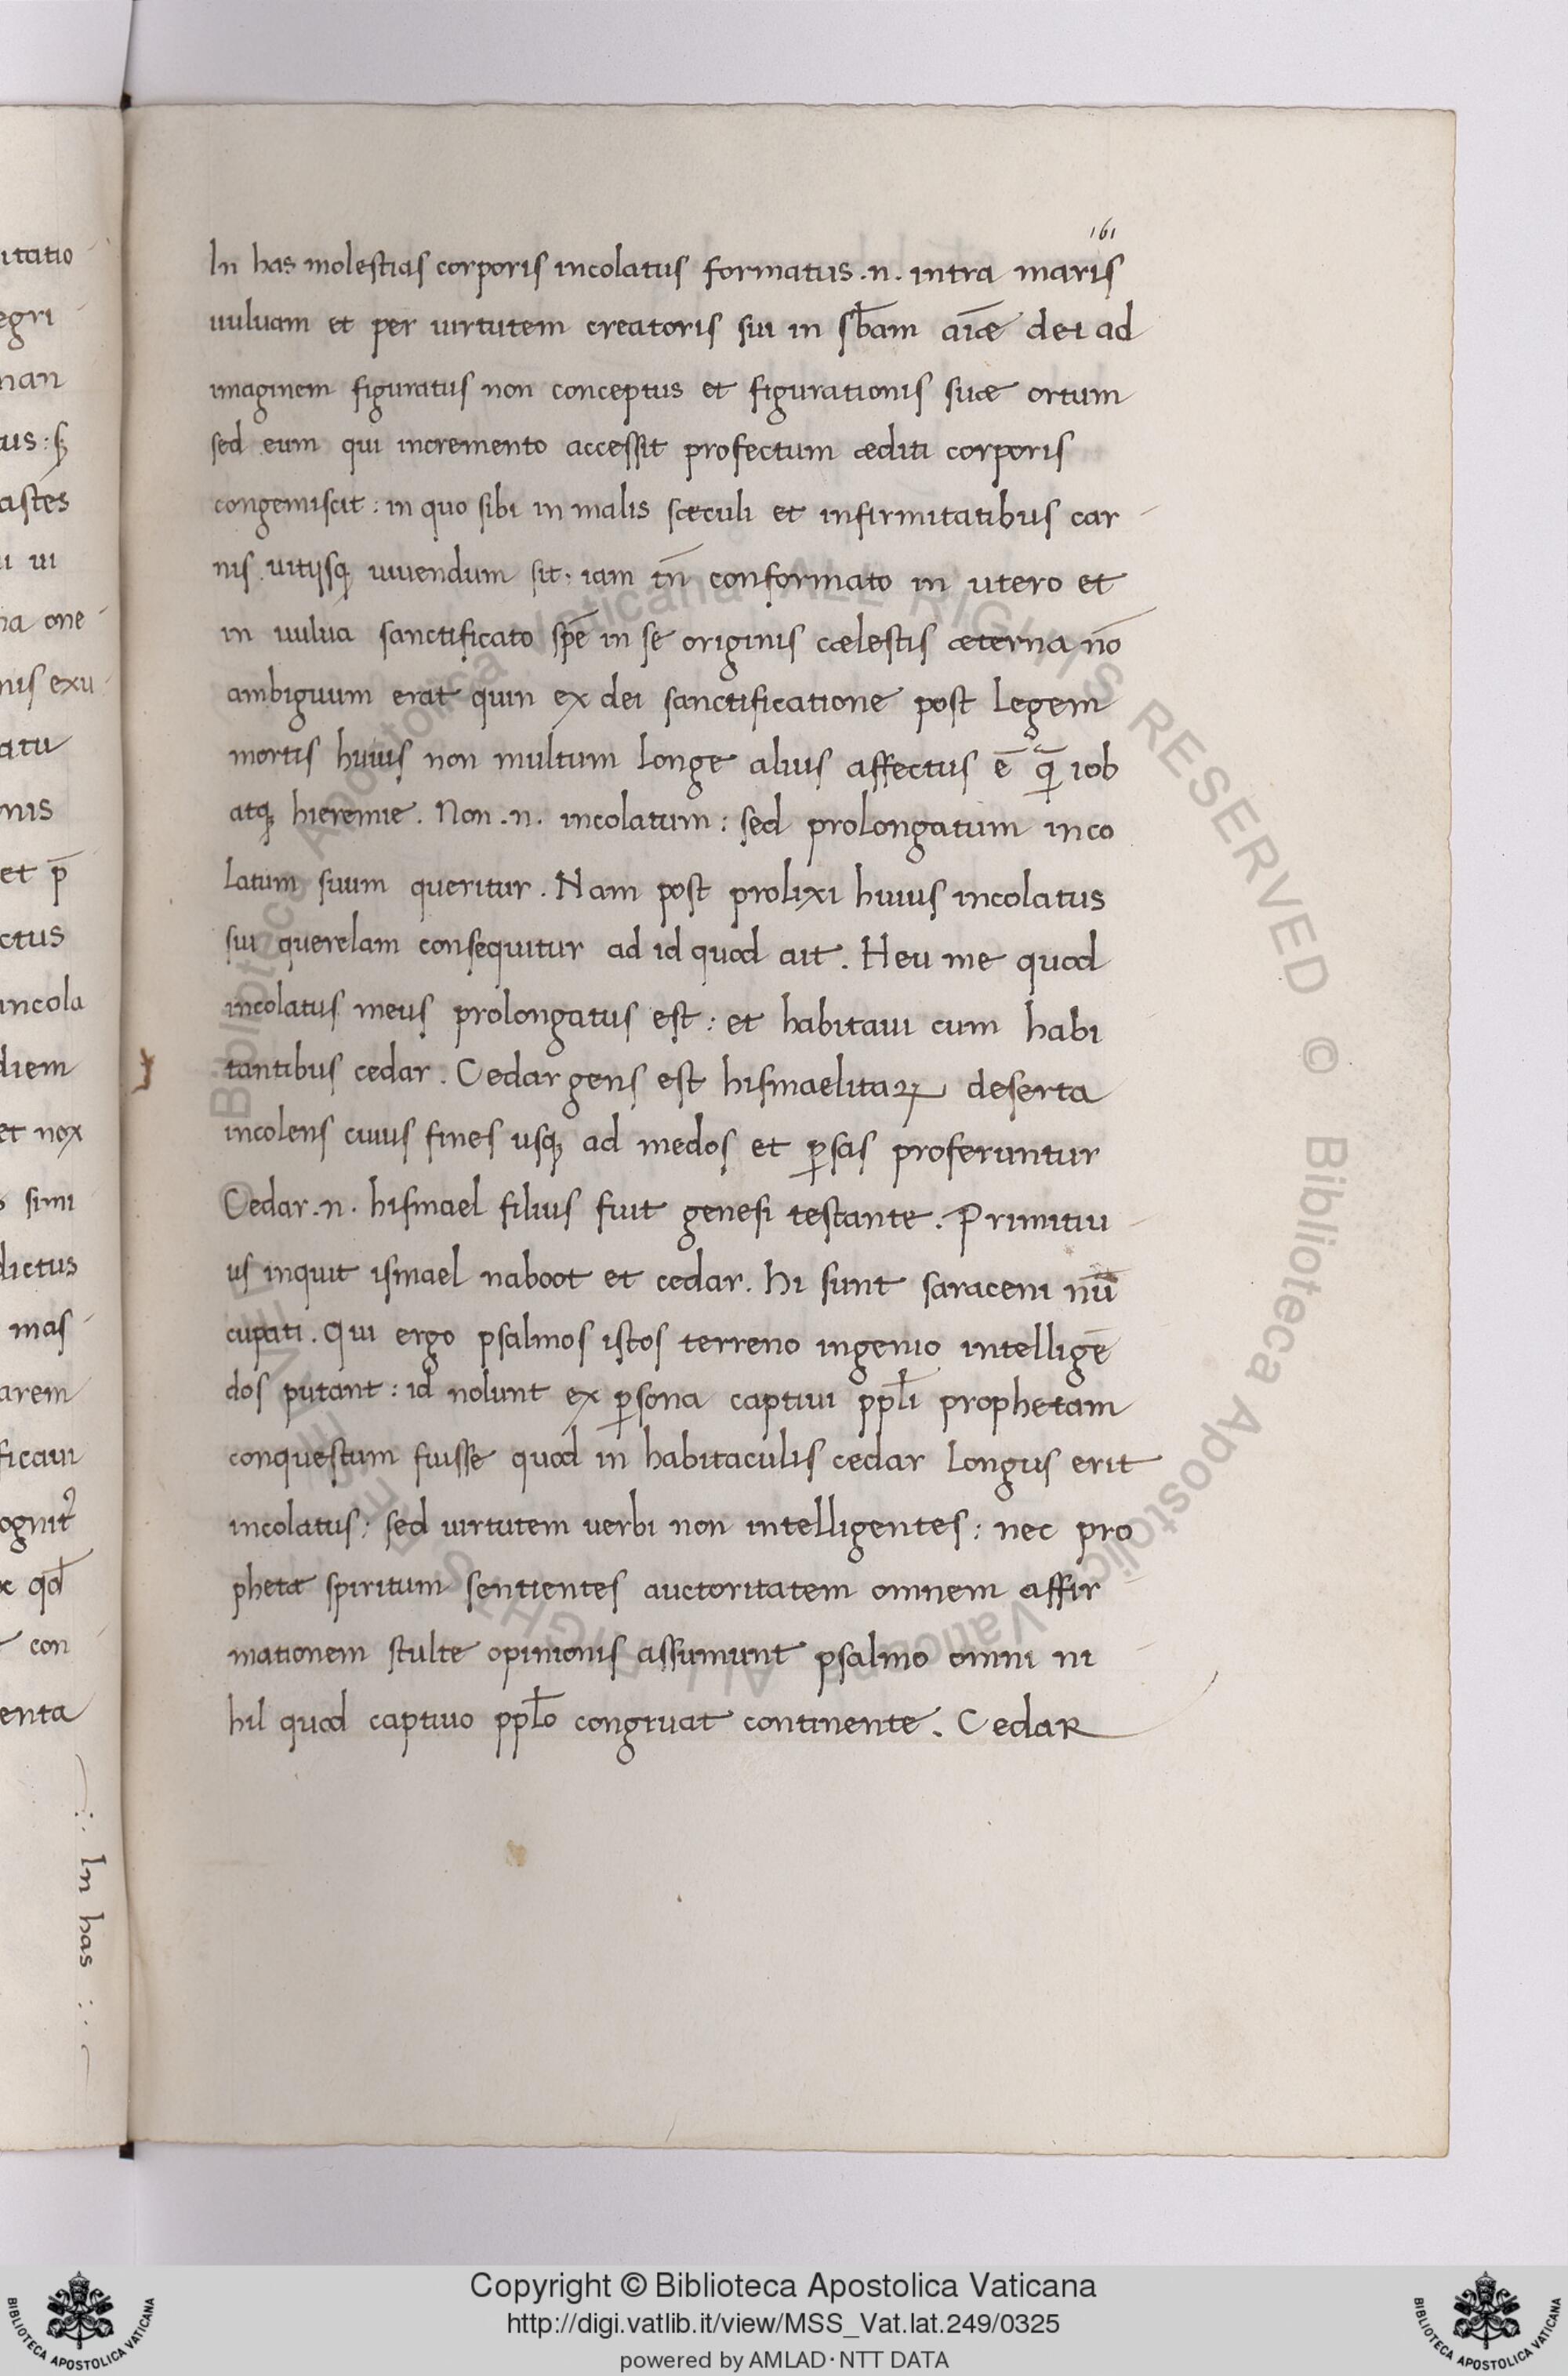 161
In has molestias corporis incolatus formatus .n. intra maris
uuluam et per uirtutem creatoris sui in sb̄am aīæ dei ad
imaginem figuratus non conceptus et figurationis suæ ortum
sed eum qui incremento accessit profectum æditi corporis
congemiscit : in quo sibi in malis sæculi et infirmitatibus car
nis uitijsq; uiuendum sit : iam tn̄ conformato in utero et
in uulua sanctificato spē in se originis cælestis æterna nō
ambiguum erat quin ex dei sanctificatione post legem
mortis huius non multum longe alius affectus ē q̄ iob
atq; hieremie. Non .n. incolatum : sed prolongatum inco
latum suum queritur. Nam post prolixi huius incolatus
sui querelam consequitur ad id quod ait. Heu me quod
incolatus meus prolongatus est : et habitaui cum habi
tantibus cedar. Cedar gens est hismaelitaꝝ deserta
incolens cuius fines usq; ad medos et ꝑsas proferuntur
Cedar .n. hismael filius fuit genesi testante. Primitiu
us inquit ismael naboot et cedar. hi sunt saraceni nū
cupati. Qui ergo psalmos istos terreno ingenio intelligē
dos putant : id nolunt ex ꝑsona captiui ppl̄i prophetam
conquestum fuisse quod in habitaculis cedar longus erit
incolatus : sed uirtutem uerbi non intelligentes : nec pro
pheta spiritum sentientes auctoritatem omnem affir
mationem stulte opinionis assumunt psalmo omni ni
hil quod captiuo ppl̄o congruat continente. Cedar
itatio
egri
nan
tus : s;
astes
ui
one
nis exu
atu
nis
et p̄
ctus
incola
diem
et nox
simi
dictus
mas
arem
ficaui
qd̄
con
enta
In has
Copyright © Biblioteca Apostolica Vaticana
http://digi.vatlib.it/view/MSS_Vat.lat.249/0325
powered by AMLAD·NTT DATA
BIBLIOTECA APOSTOLICA VATICANA
BIBLIOTECA APOSTOLICA VATICANA